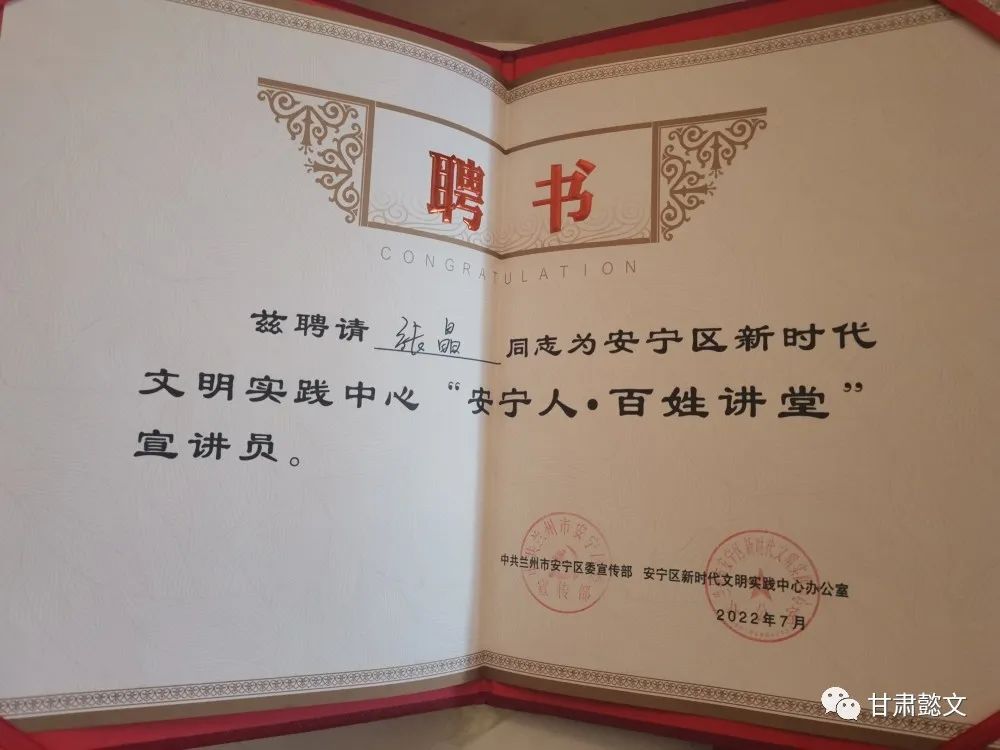 聘书
CONGRATULATION
兹聘请 张晶 同志为安宁区新时代
文明实践中心“安宁人·百姓讲堂”
宣讲员。
中共兰州市安宁区委宣传部 安宁区新时代文明实践中心办公室
2022年7月
宣传部
甘肃懿文